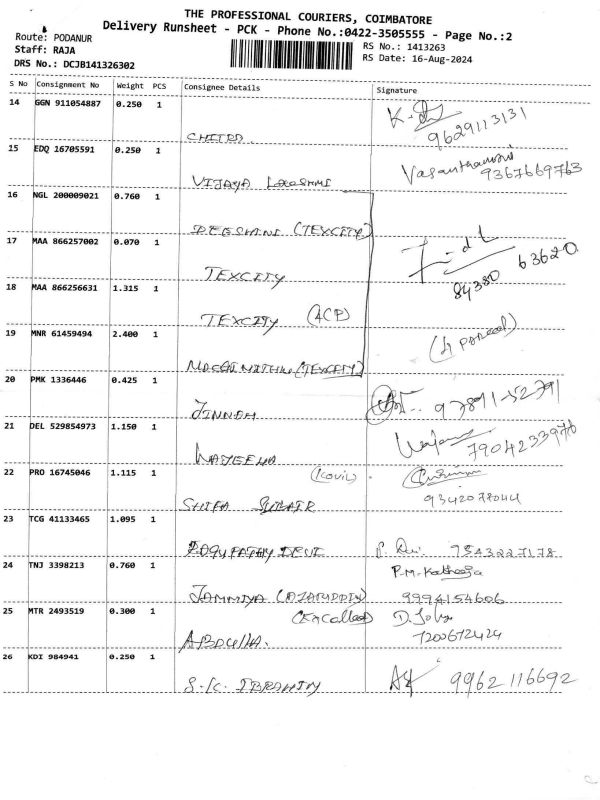 THE PROFESSIONAL COURIERS, COIMBATORE
Delivery Runsheet - PCK - Phone No.:0422-3505555 - Page No.:2
Route: PODANUR
RS No.: 1413263
Staff: RAJA
RS Date: 16-Aug-2024
DRS No.: DCJB141326302
S No Consignment No Weight PCS Consignee Details Signature
14 GGN 911054887 0.250 1
K-
9629113131
CHITRA
15 EDQ 16705591 0.250 1
9367669763
VIJAYA LAKSHMI
16 NGL 200009021 0.760 1
(TEXCITY)
17 MAA 866257002 0.070 1
84380 63620
TEXCITY
18 MAA 866256631 1.315 1
TEXCITY (ACP)
19 MNR 61459494 2.400 1
(4 PARCEL)
(TEXCITY)
20 PMK 1336446 0.425 1
JINNAH 97891-52791
21 DEL 529854973 1.150 1
7904233976
NAJEEHA
22 PRO 16745046 1.115 1
(KOVIL)
9342078044
SHIFA
23 TCG 41133465 1.095 1
DEVI P. Devi 7543227178
24 TNJ 3398213 0.760 1
P.M. Katheeja
9994154606
25 MTR 2493519 0.300 1
7200672424
ABDULLA.
26 KDI 984941 0.250 1
S.K. IBRAHIM 9962116692